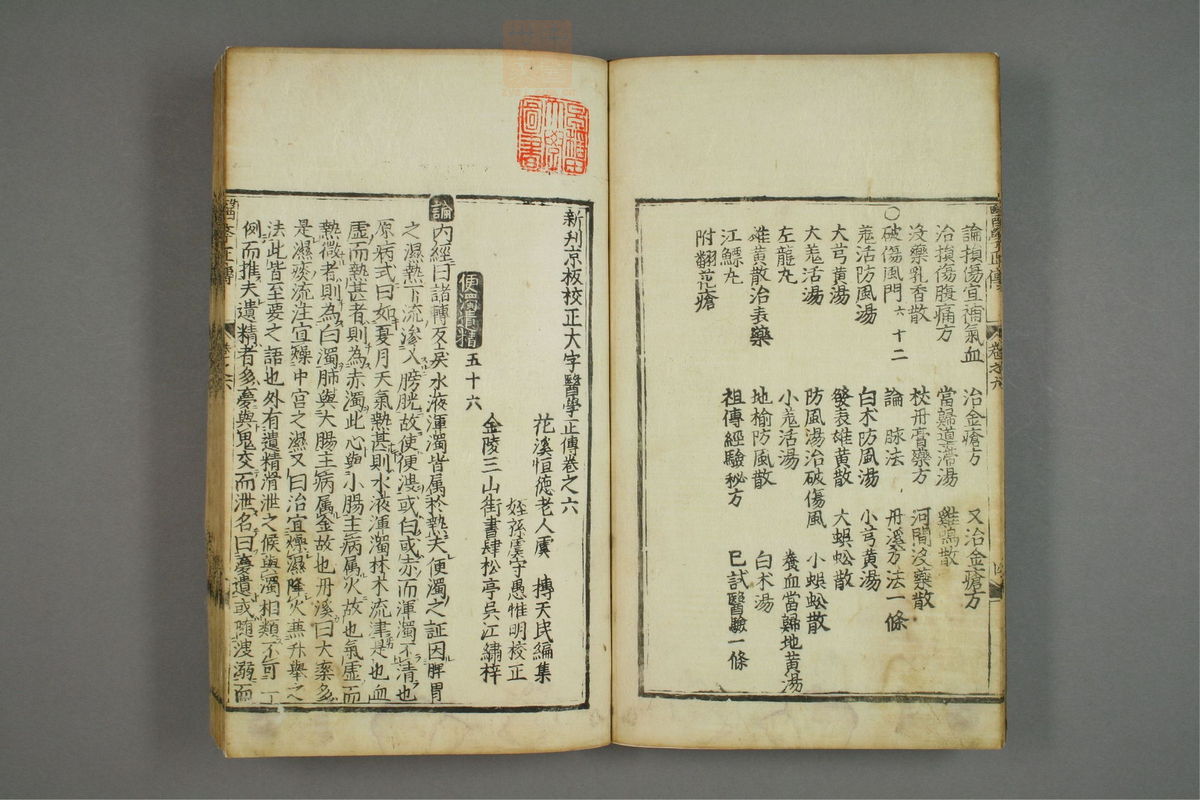 論損傷宜補氣血 治金瘡方 又治金瘡方
治損傷腹痛方 當歸導滯湯 雞鳴散
沒藥乳香散 校冊膏藥方 河間沒藥散
○破傷風門六十二 論 脉法 丹溪方法一條
羗活防風湯 白术防風湯 小芎黄湯
大芎黄湯 發表雄黄散 大蜈蚣散
大羗活湯 防風湯治破傷風 小蜈蚣散
左龍九 小羗活湯 養血當歸地黄湯
雄黄散治表藥 地榆防風散 白术湯
江鰾九 祖傳經驗秘方 已試醫驗一條
附翻花瘡
新刋京板校正大字醫學正傳卷之六
花溪恒德老人虞 摶天民編集
姪孫虞守愚惟明校正
金陵三山街書肆松亭吳江繡梓
便濁遺精 五十六
論 内經曰諸轉反戾水液渾濁皆属於熱夫便濁之証因脾胃
之濕熱下流滲入膀胱故使便溲或白或赤而渾濁不清也
原病式曰如夏月天氣熱甚則水液渾濁林木流津是也血
虛而熱甚者則為赤濁此心與小腸主病属火故也氣虛而
熱微者則為白濁肺與大腸主病属金故也丹溪曰大率多
是濕痰流注宜燥中宮之濕又曰治宜燥濕降火兼升舉之
法此皆至要之語也外有遺精滑泄之候與濁相類不可一
例而推夫遺精者多夢與鬼交而泄名曰夢遺或隨溲溺而